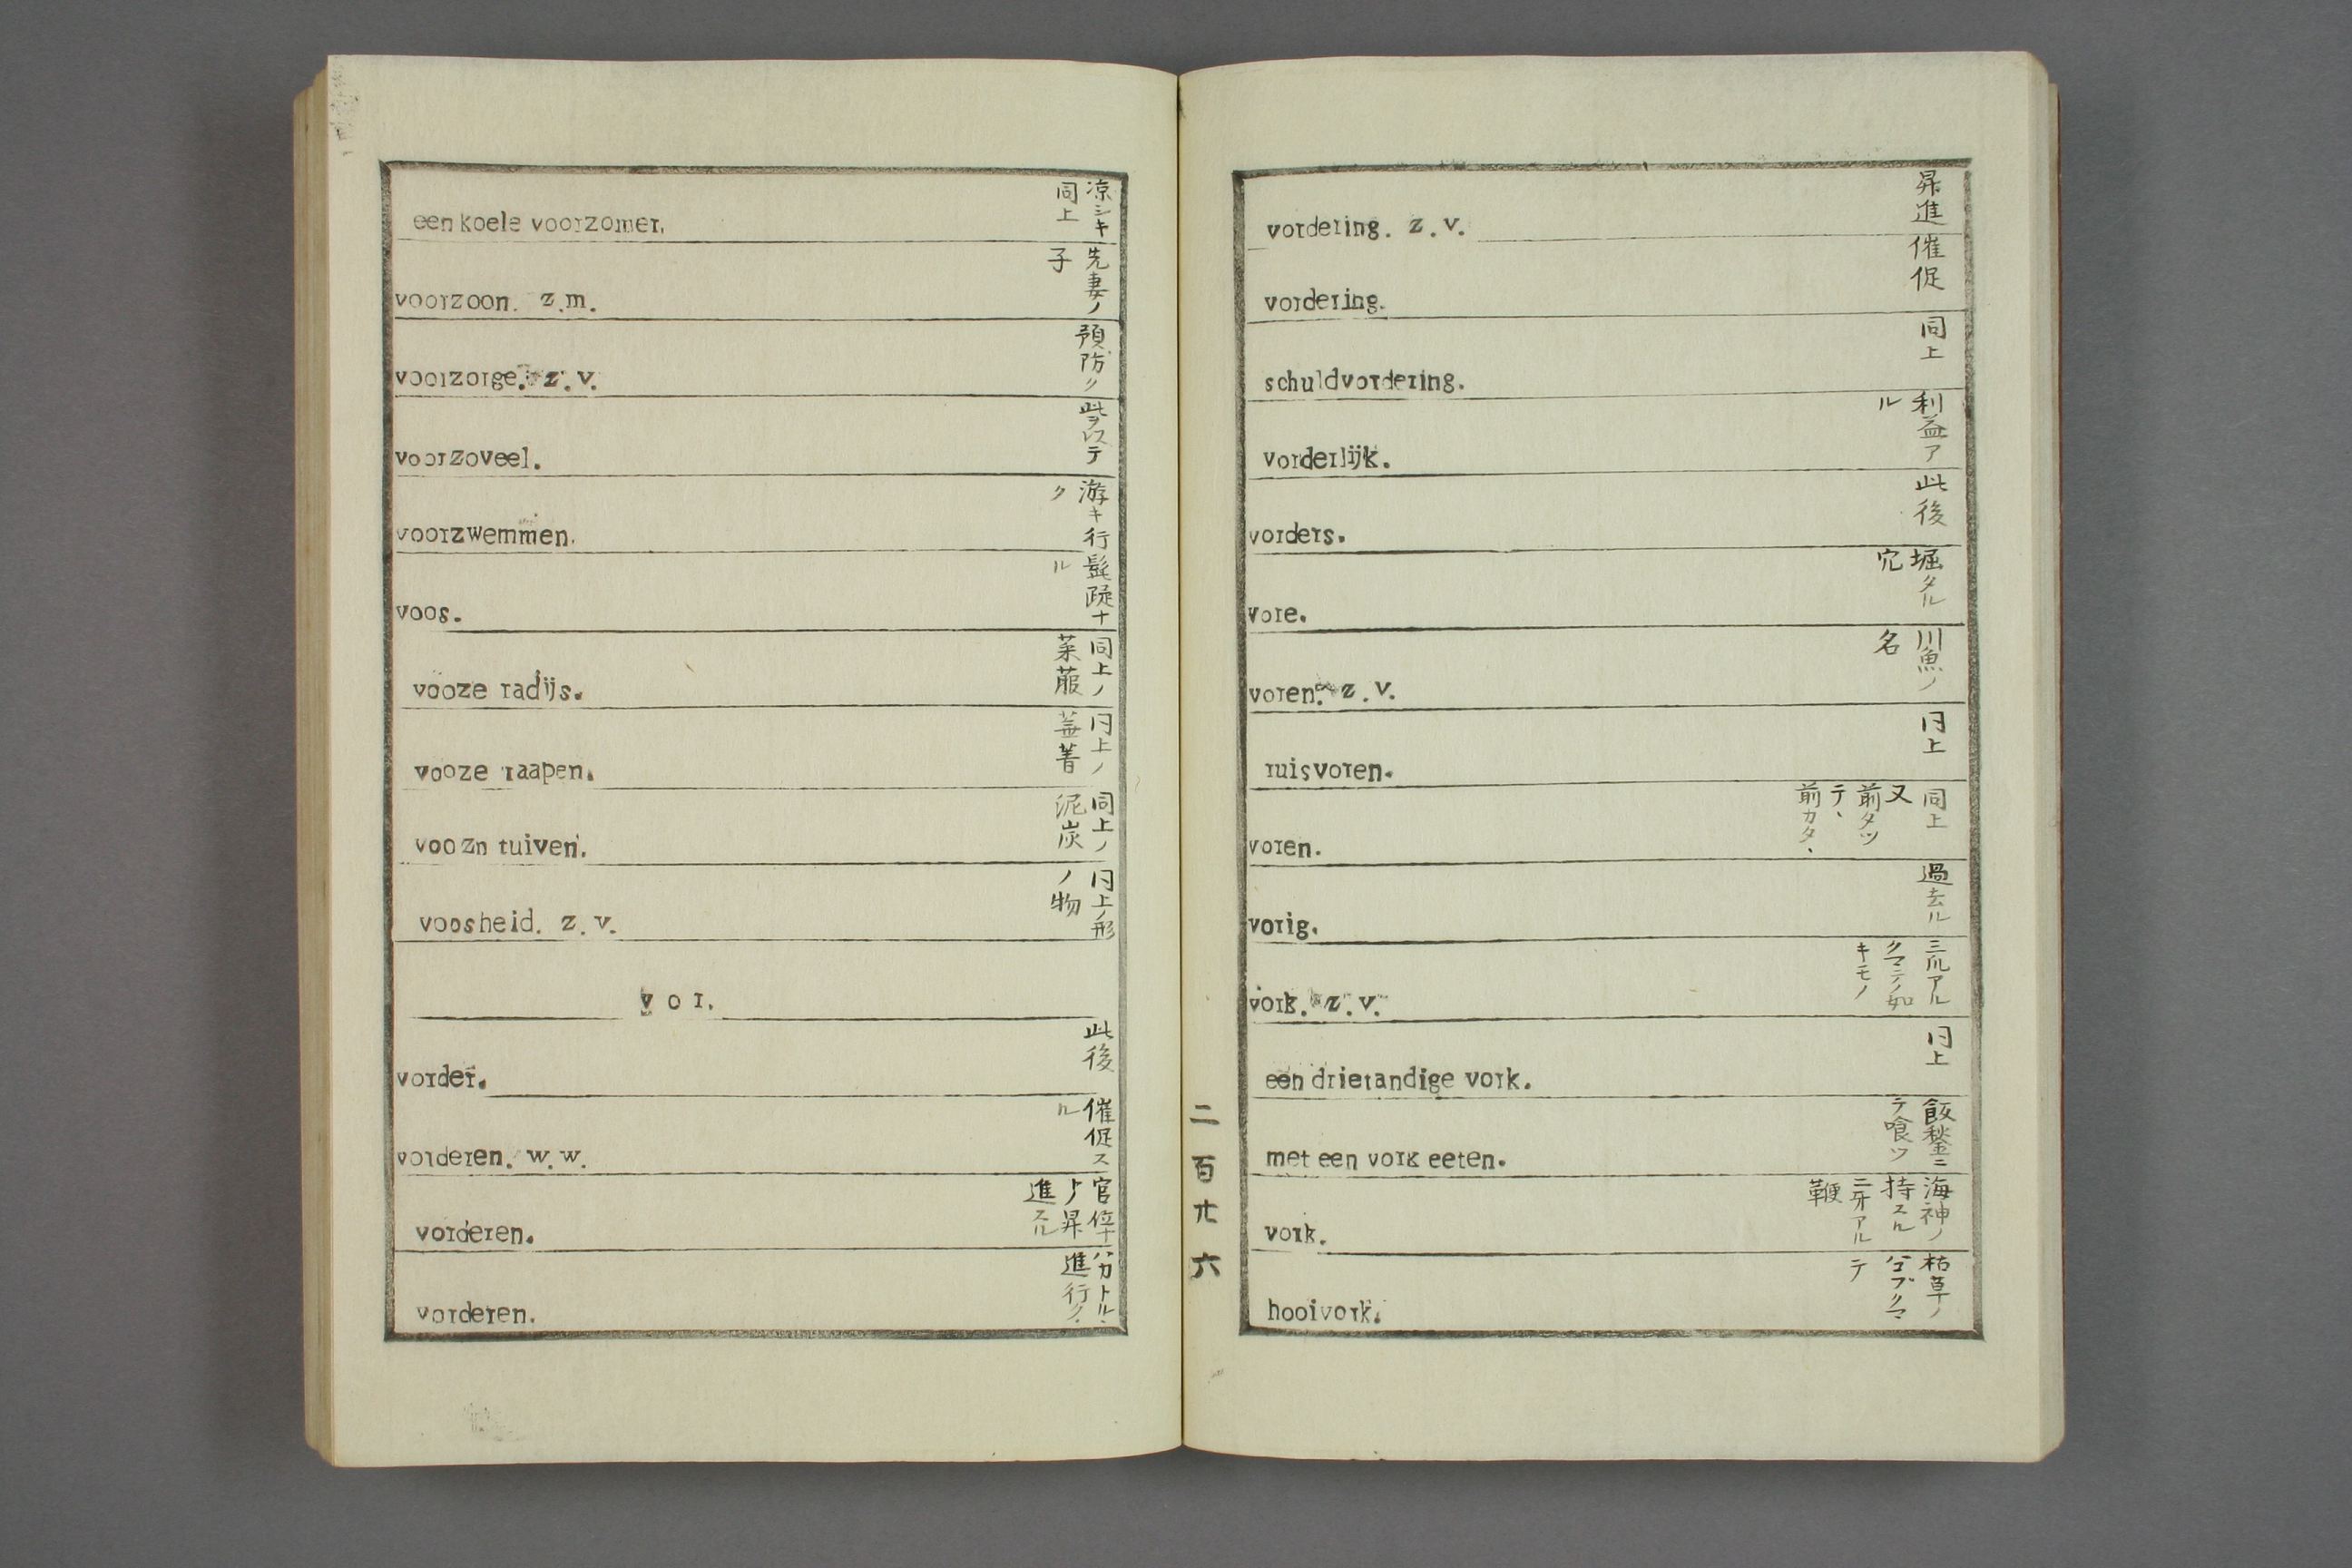 een koele voorzomer. 凉シキ同上
voorzoon. z.m. 先妻ノ子
voorzorge. z.v. 預防
voorzoveel.
voorzwemmen. 游キ行ク
voos. 髭疑ナル
vooze radijs. 同上ノ菜菔
vooze raapen. 同上ノ蕪菁
voozn tuiven. 同上ノ泥炭
voosheid. z.v. 同上ノ形ノ物
vor.
vorder. 此後
vorderen. w.w. 催促スル
vorderen. 昇進スル
vorderen. 進行ク
二百廿六
vordering. z.v. 昇進
vordering. 催促
schuldvordering. 同上
vorderlijk. 利益アル
vorders. 此後
vore. 堀タル穴
voren. z.v. 川魚ノ名
ruisvoren. 同上
voren. 同上又前タツテ、前カタ、
vorig. 過去ル
vork. z.v. 三爪アルクマテノ如キモノ
een drietandige vork. 同上
met een vork eeten. 
vork. 海神ノ持スル二牙アル鞭
hooivork. 枯草ノ